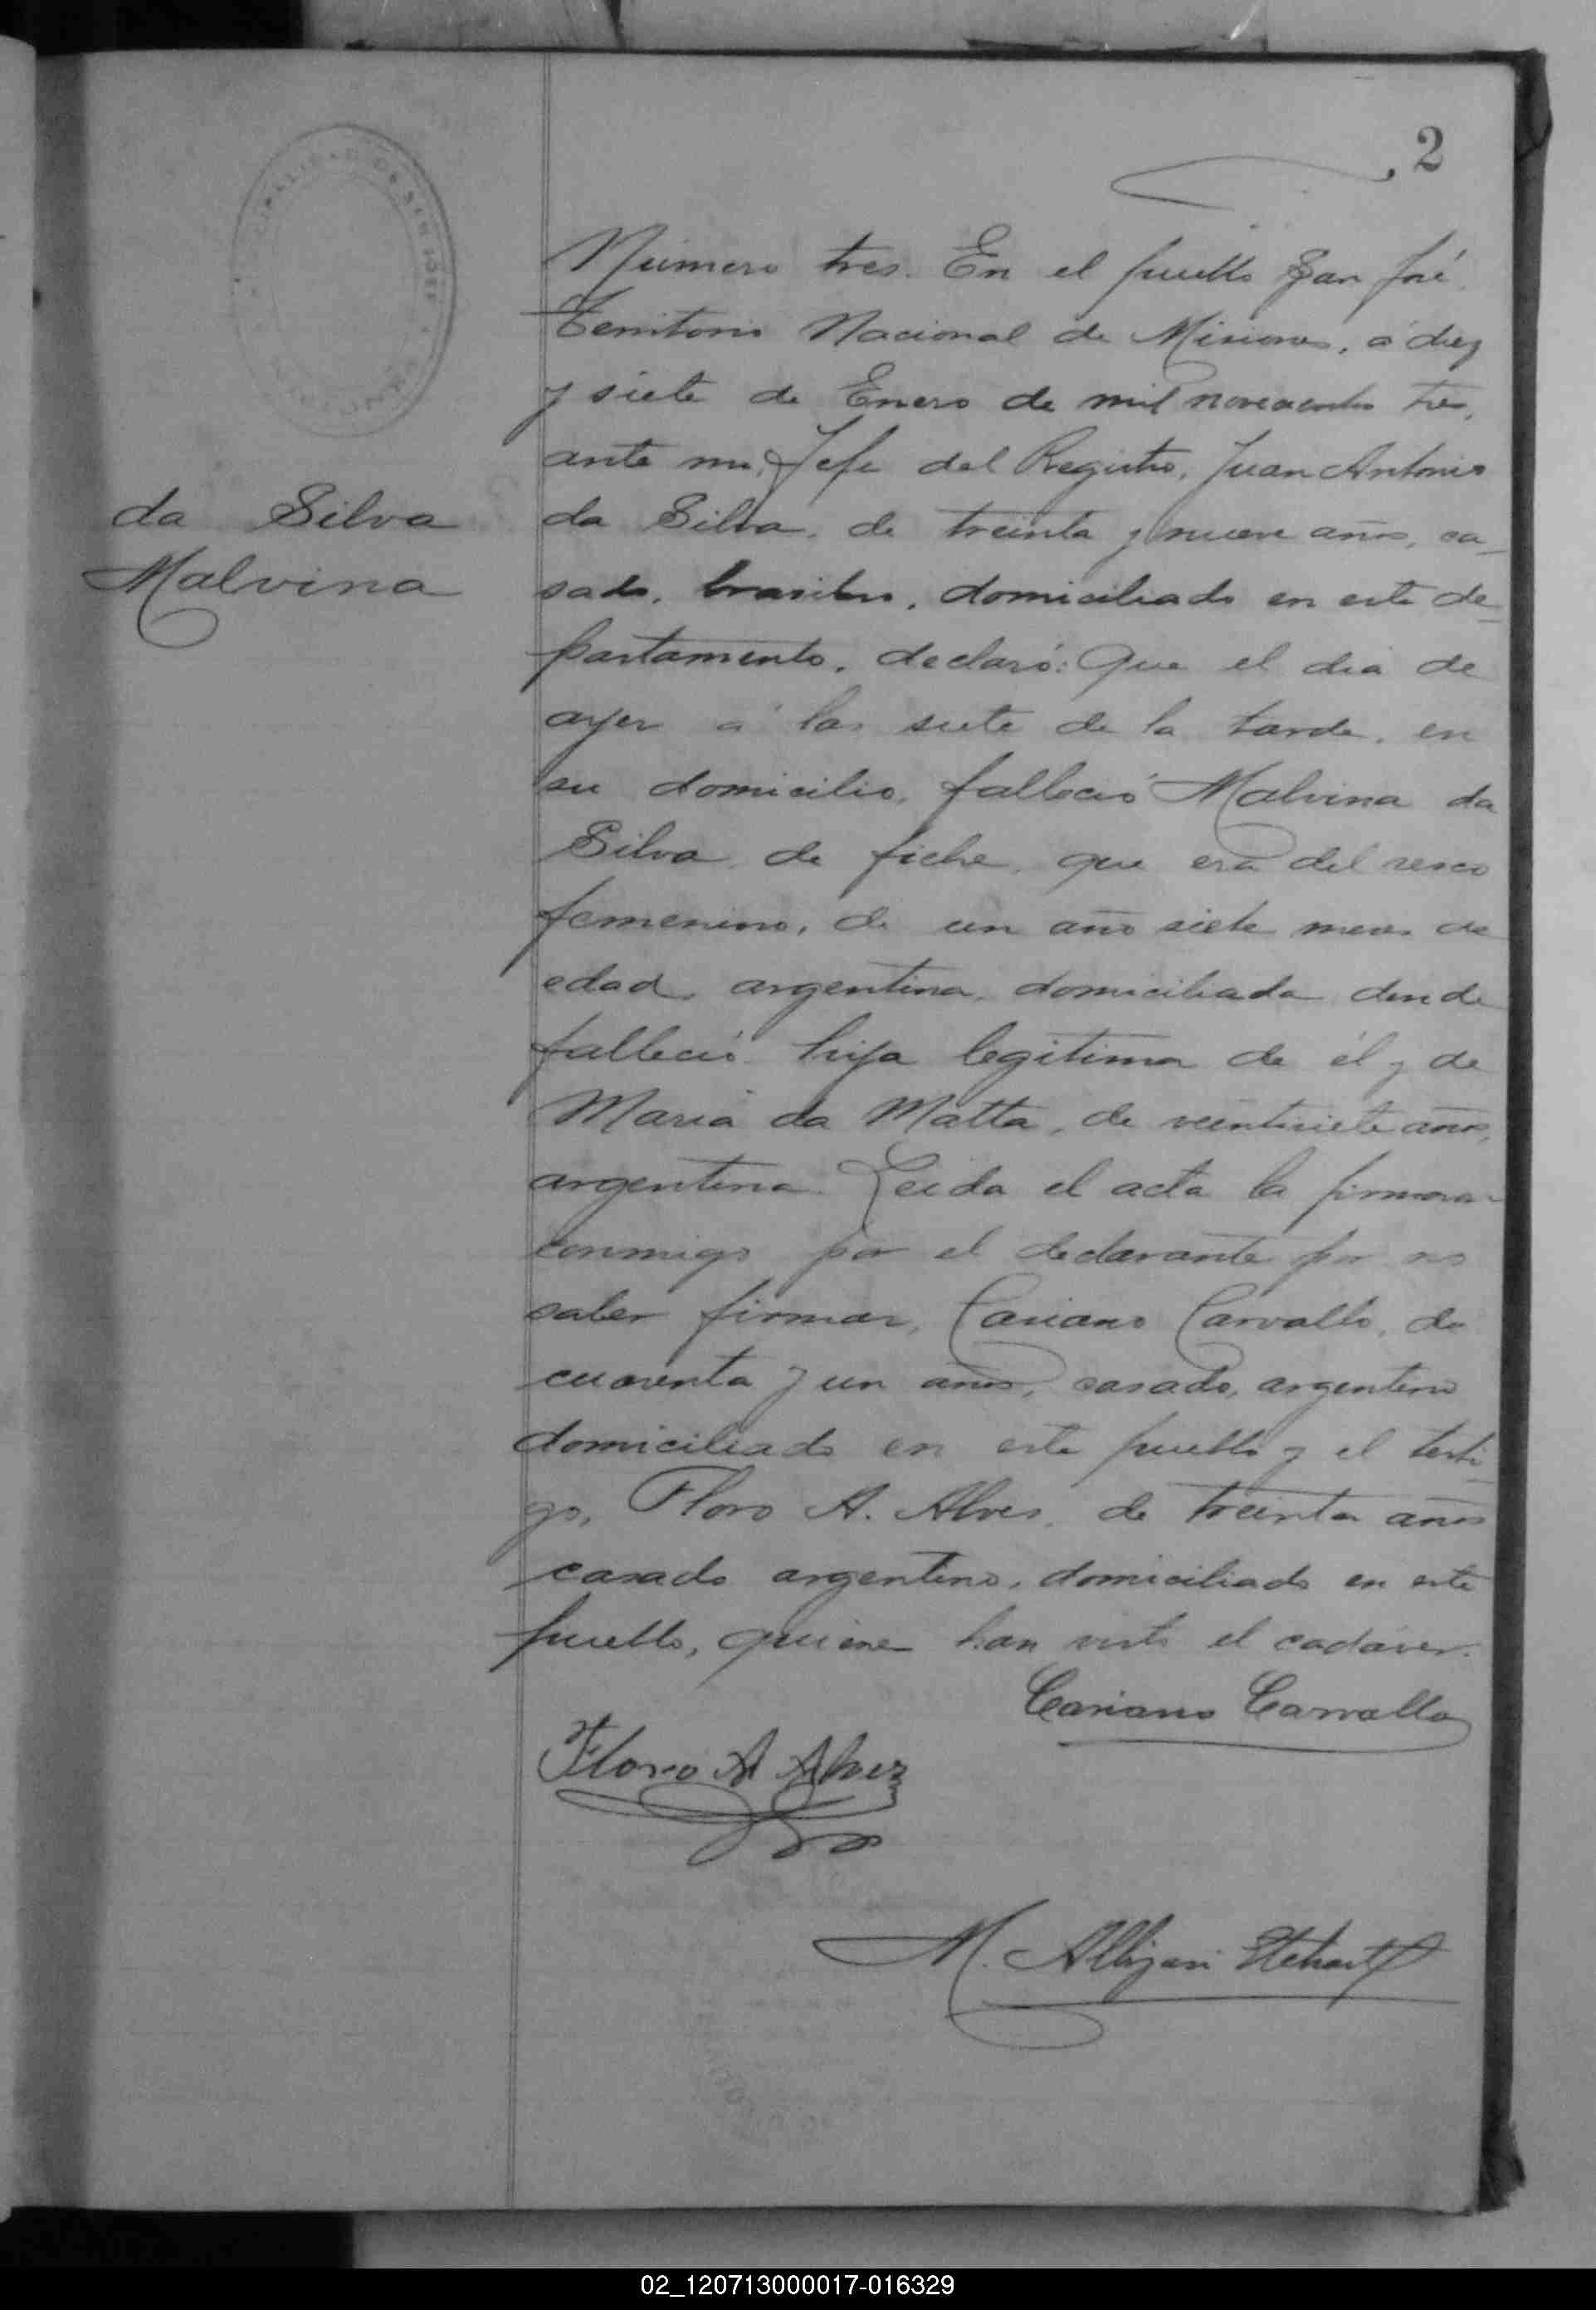 2
Número tres. En el pueblo San José
Territorio Nacional de Misiones, á diez
y siete de Enero de mil novecientos tres,
ante mi, Jefe del Registro, Juan Antonio
da Silva
Malvina
da Silva, de treinta y nueve años, ca-
sado, brasilero, domiciliado en este de-
partamento, declaró: Que el dia de
ayer á las siete de la tarde, en
su domicilio, falleció Malvina da
Silva, de fiebre, que era del sexo
femenino, de un año siete meses de
edad, argentina, domiciliada donde
falleció hija legítima de él y de
Maria da Matta, de veintisiete años,
argentina. Leida el acta la firmaron
conmigo por el declarante por no
saber firmar, Cariano Carvallo, de
cuarenta y un años, casado, argentino
domiciliado en este pueblo y el testi-
go, Floro A. Alves, de treinta años
casado argentino, domiciliado en este
pueblo, quienes han visto el cadáver.
Cariano Carvallo
Floro A Alvez
M.
02_120713000017-016329